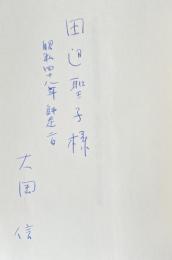 田辺聖子様
昭和四十八年 師走
大岡 信